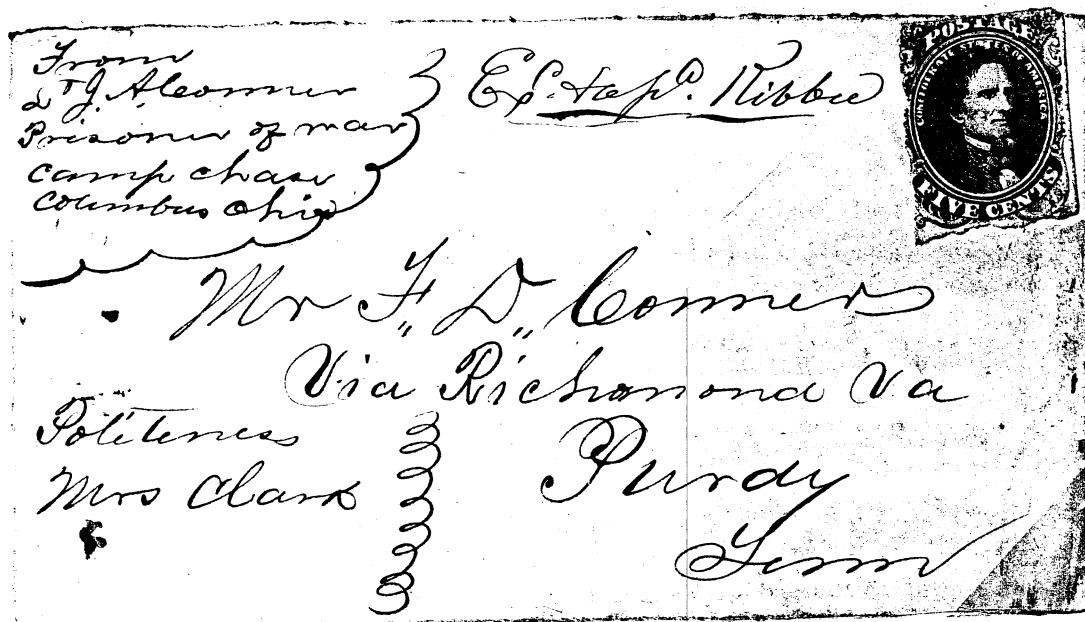 From
Lt J. A Conner
Prisoner of war
camp chase
Columbus Ohio
Ex. Kibbee
POSTAGE
CONFEDERATE STATES OF AMERICA
FIVE CENTS
Mr F,, D,, Conner
Via Richmond Va
Politeness
Mrs Clark
Purdy
Tenn